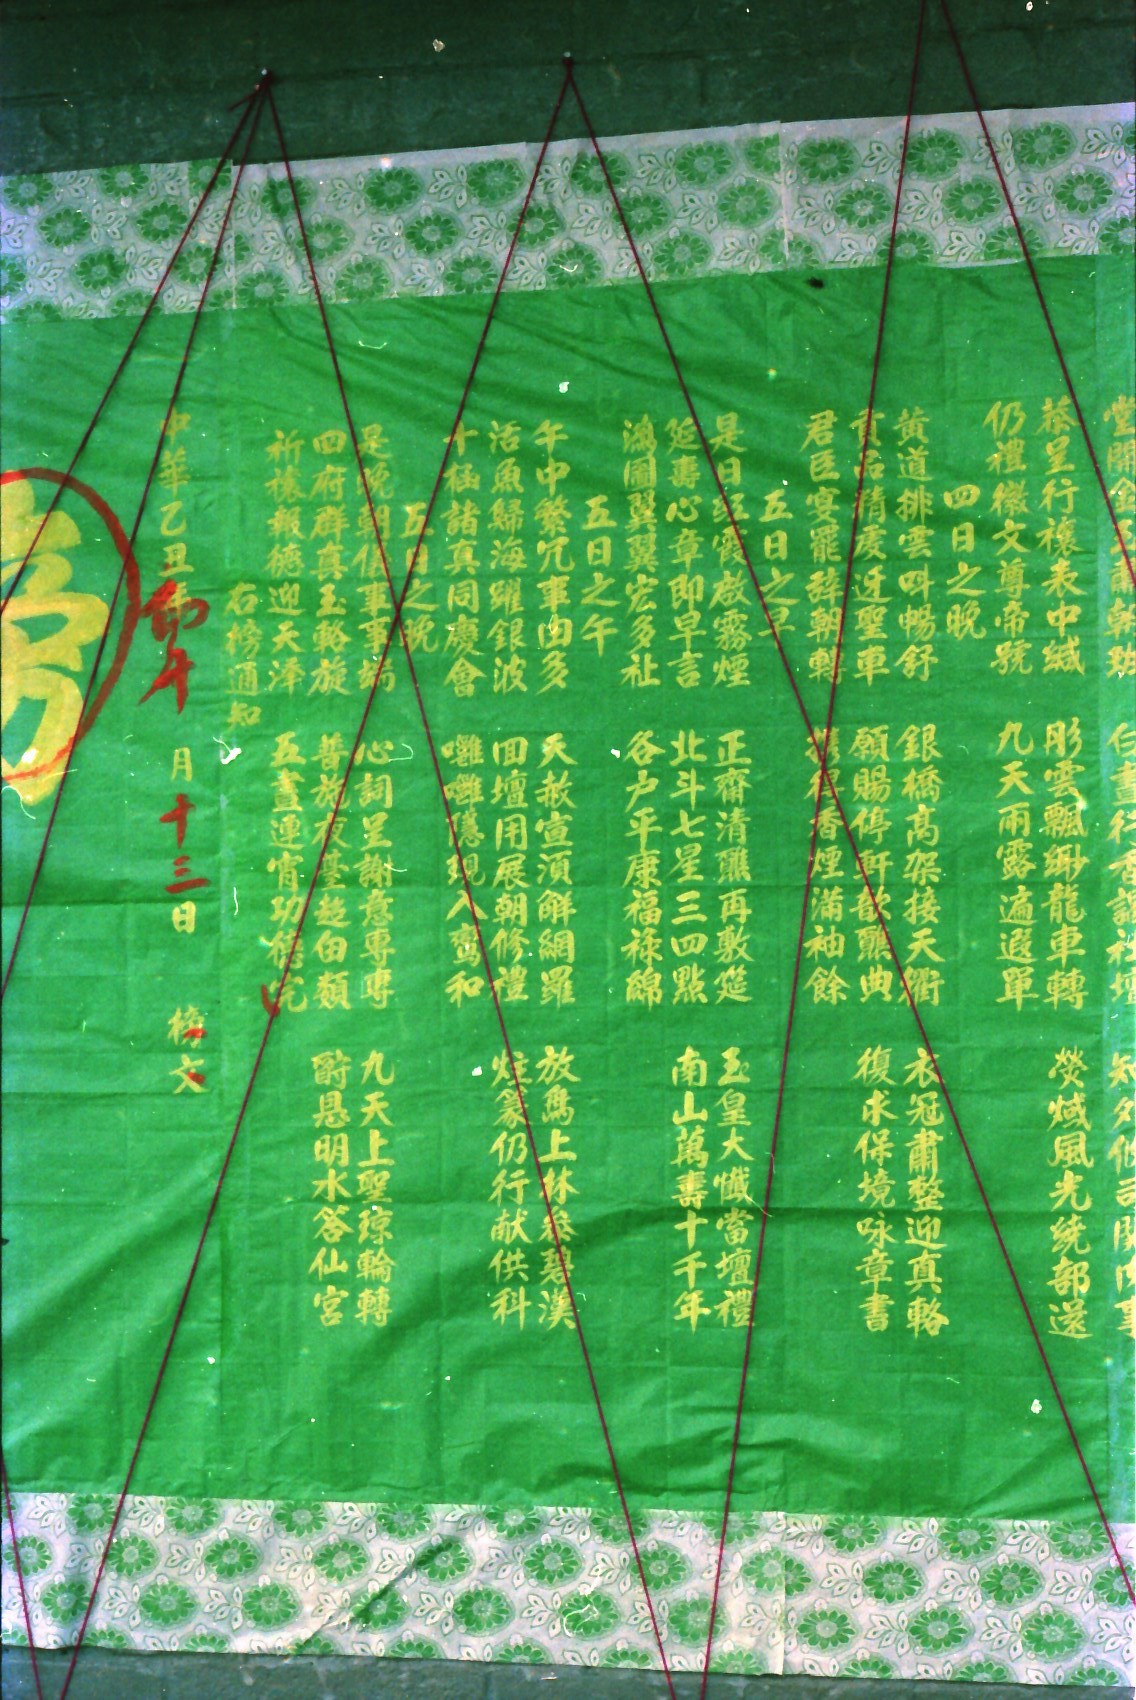 行香謝社壇
恭呈行禳表中緘 彤雲飄緲龍車轉 熒煘風光繞部還
仍禮徽文尊帝號 九天雨露遍遐單
四日之晚
黃道排雲叫暢舒 銀橋高架接天衢 衣冠肅整迎真輅
清虔迓聖車 願賜停軒歆醮典 復求保境咏章書
君臣宴罷辭朝轉 得香煙滿袖餘
五日之早
是日經霞啟霧煙 正齋清醮再敷筵 玉皇大懺當壇禮
延壽心章即早言 北斗七星三四點 南山萬壽十千年
鴻圖翼翼宏多祉 各户平康福祿綿
五日之午
午中繁冗事由多 天赦宣須解網羅 放雋上林參碧漢
活魚歸海躍銀波 回壇用展朝修禮 炷篆仍行献供科
十極諸真同慶會 囉囉隱現八鸞和
五日之晚
是晚朝僅事事端 心詞呈謝意專專 九天上聖琼輪轉
四府群真玉軫旋 普施夜臺超由類 爵悬明水答仙宮
祈禳報德迎天澤 五晝連宵功德完
右榜通知
中華乙丑年 月十三日 榜文
榜